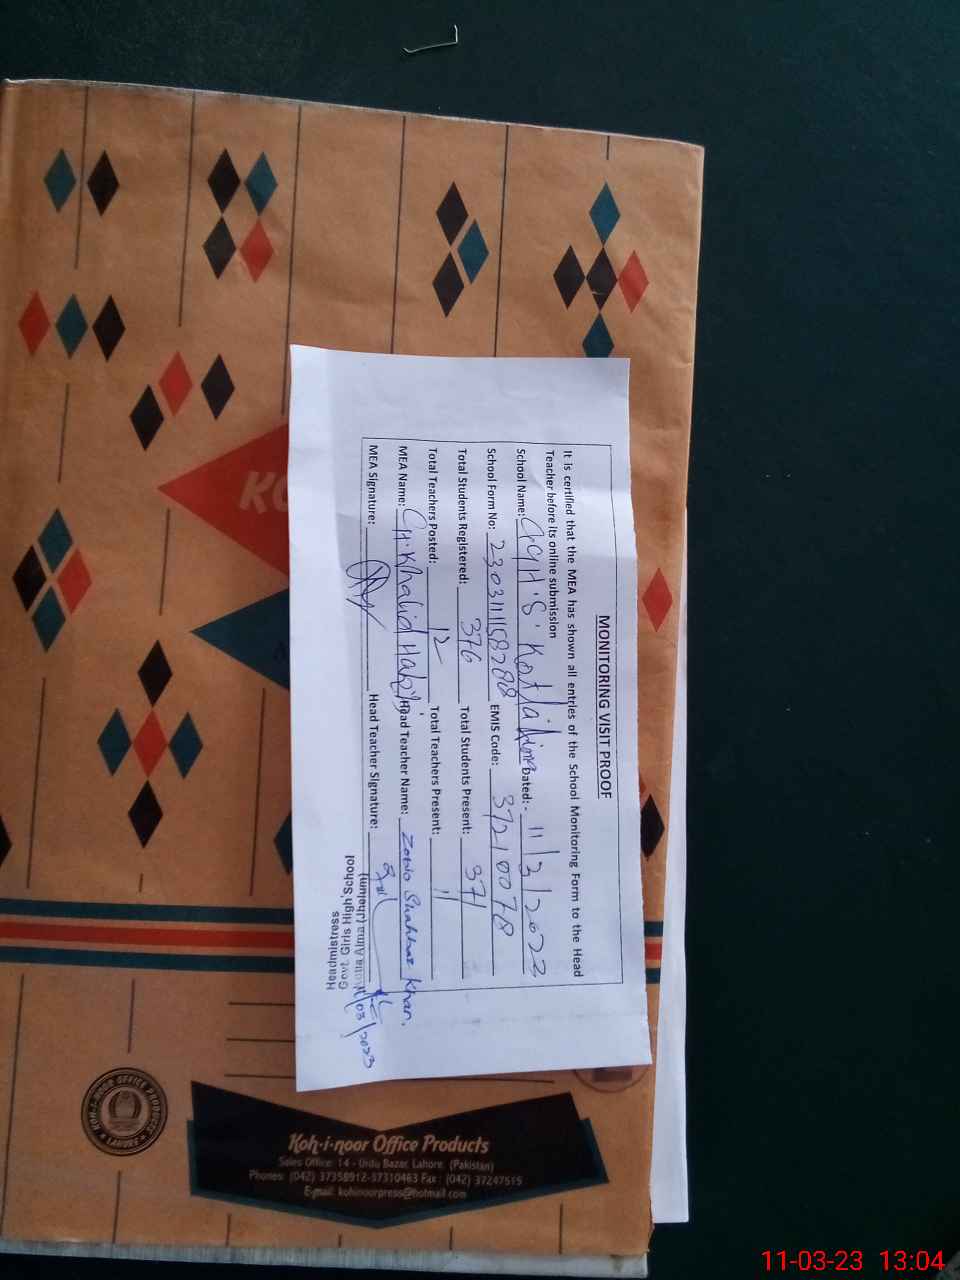 MONITORING VISIT PROOF
It is certified that the MEA has shown all entries of the School Monitoring Form to the Head
Teacher before its online submission
School Name: GGH'S' Kotla Aima Dated:- 11/3/2023
School Form No: 230311158288 EMIS Code: 37210078
Total Students Registered: 376 Total Students Present: 371
Total Teachers Posted: 12 Total Teachers Present: 11
MEA Name: CH. Khalid Head Teacher Name: Khan.
MEA Signature: Head Teacher Signature:
11/03/2023
Headmistress
Govt. Girls High School
Kotla Aima (Jhelum)
KO
Koh-i-noor Office Products
Sales Office: 14 - Urdu Bazar, Lahore. (Pakistan)
Phones: (042) 37358912-37310463 Fax : (042) 37247515
E-mail: kohinoorpress@hotmail.com
KOH-I-NOOR OFFICE PRODUCTS
LAHORE
11-03-23 13:04